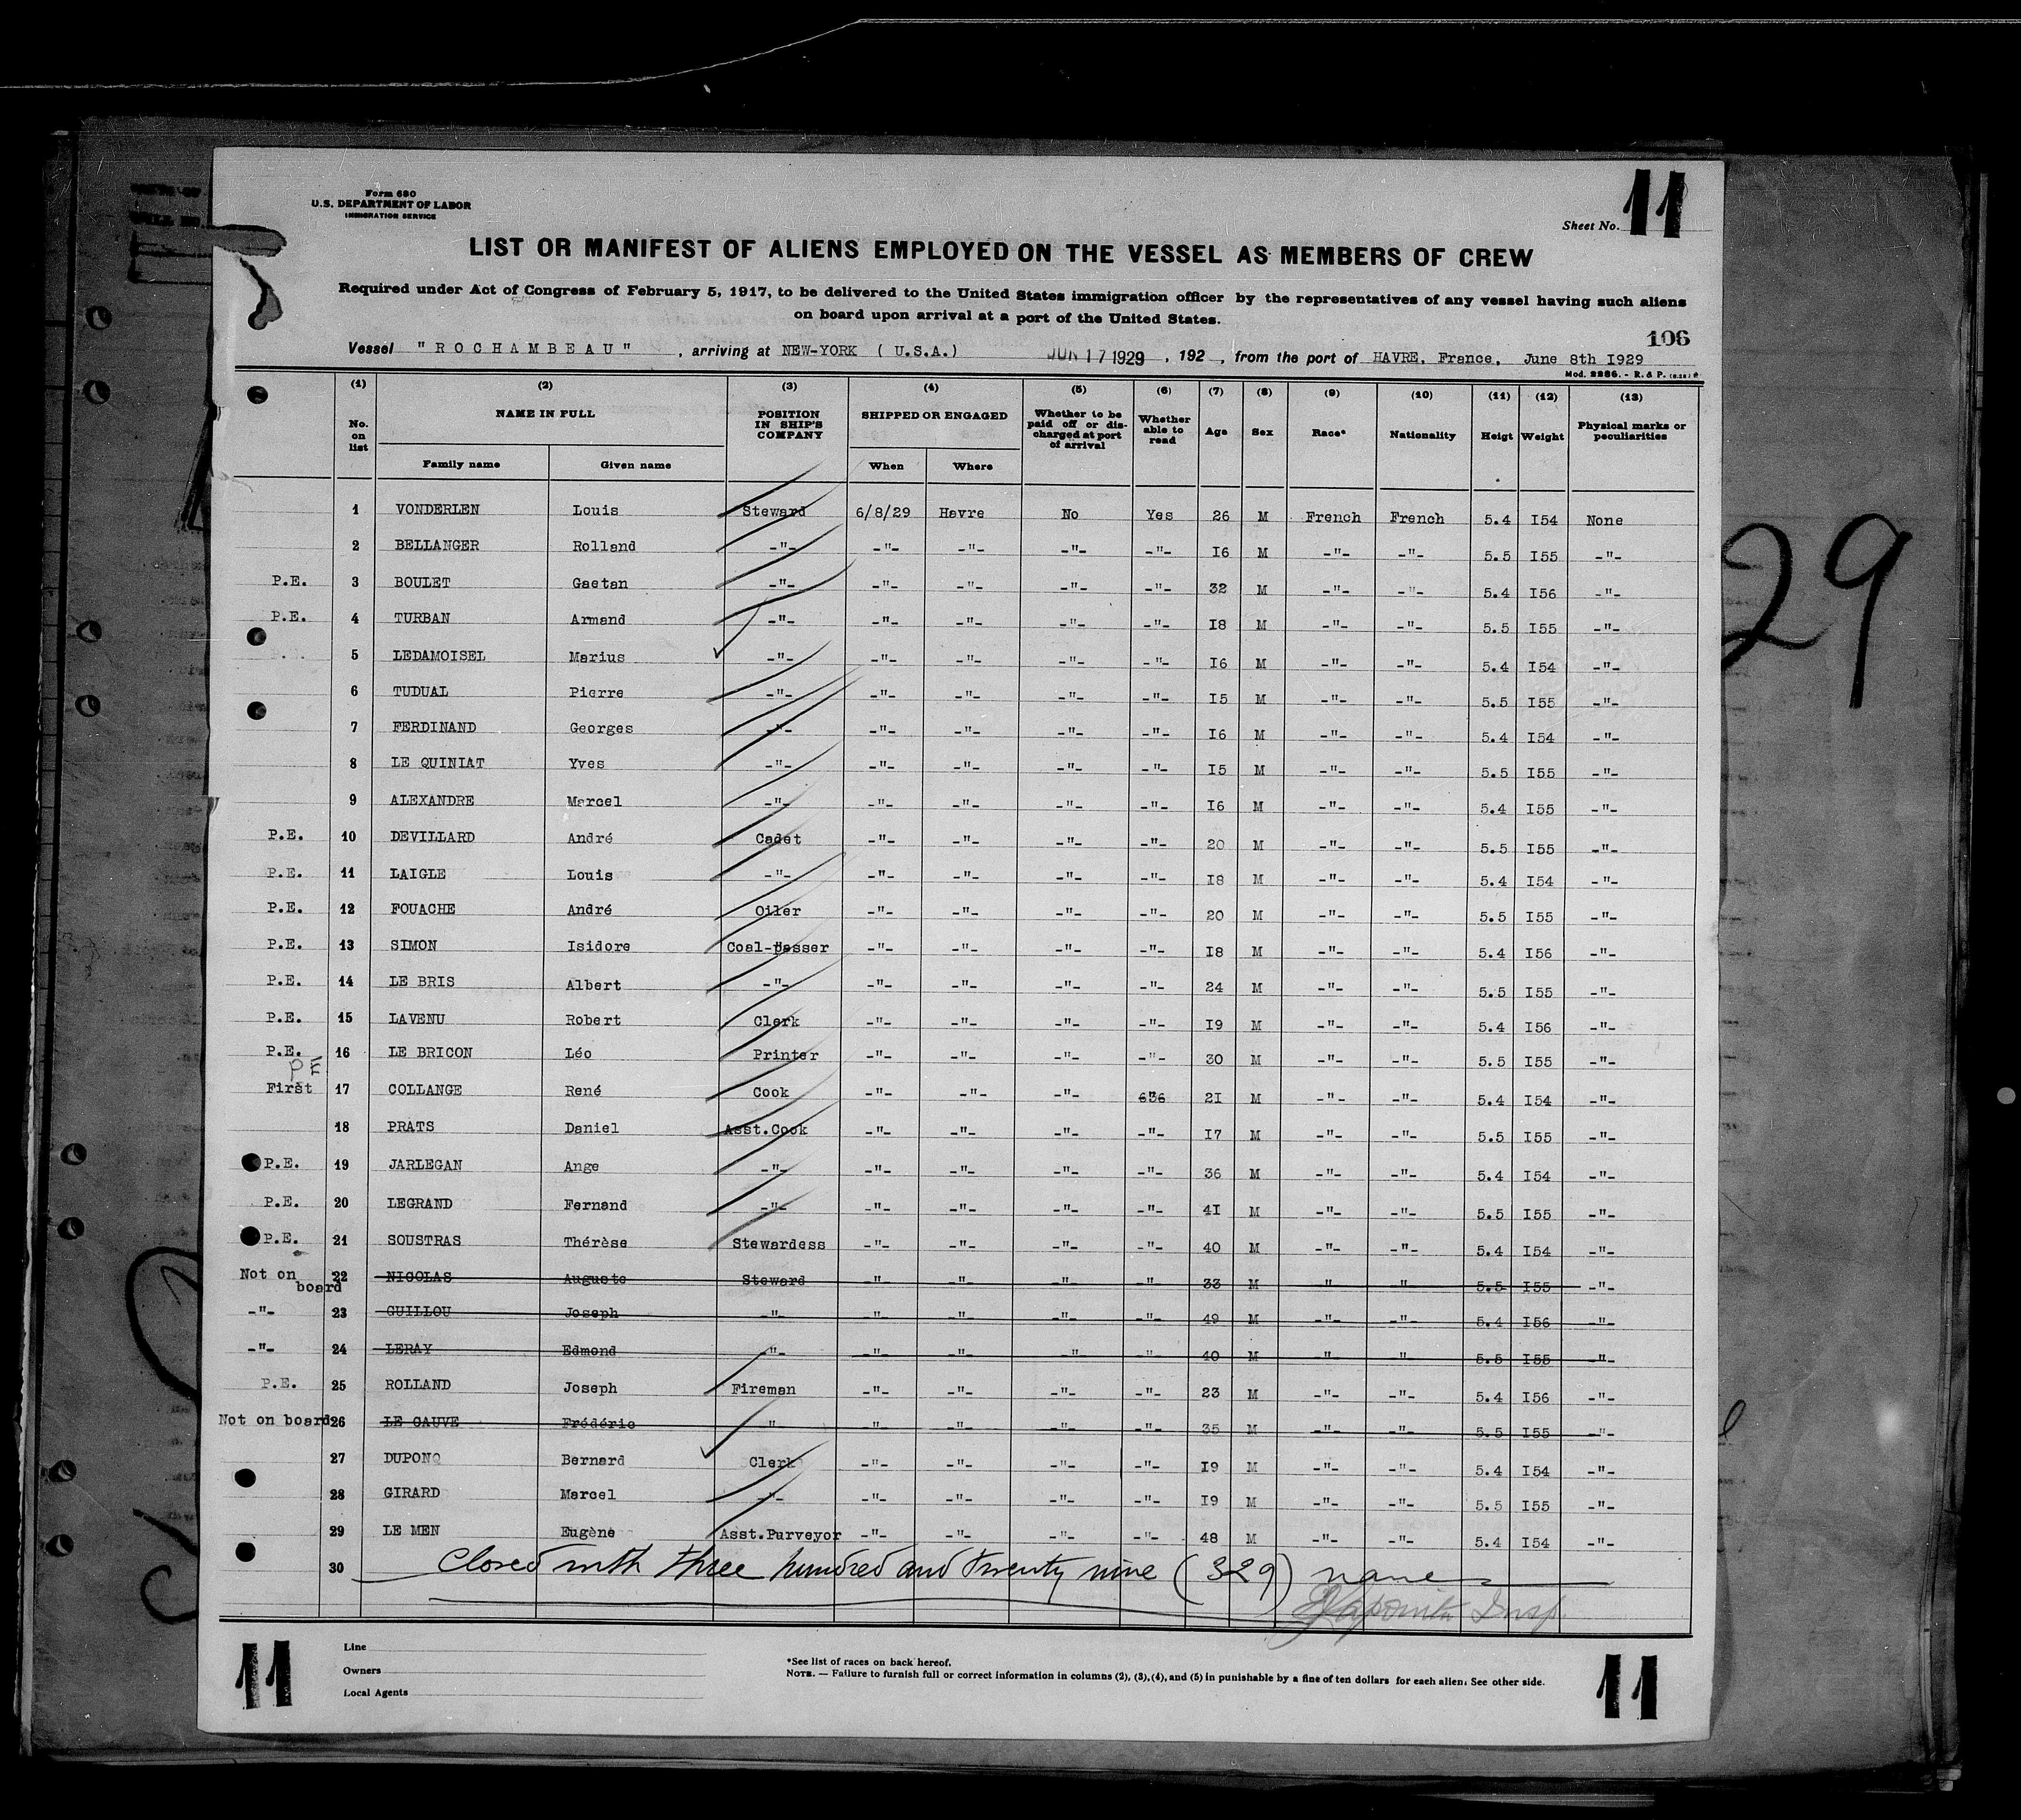 Form 680
U.S. DEPARTMENT OF LABOR
IMMIGRATION SERVICE
Sheet No. 11
LIST OR MANIFEST OF ALIENS EMPLOYED ON THE VESSEL AS MEMBERS OF CREW
Required under Act of Congress of February 5, 1917, to be delivered to the United States immigration officer by the representatives of any vessel having such aliens
on board upon arrival at a port of the United States.
106
Vessel "ROCHAMBEAU" , arriving at NEW-YORK (U.S.A.) JUN 17 1929 , 192 , from the port of HAVRE, France, June 8th I929
Mod. 2286. - R. & P.
(1) (2) (3) (4) (5) (6) (7) (8) (9) (10) (11) (12) (13)
No. on list NAME IN FULL POSITION IN SHIP'S COMPANY SHIPPED OR ENGAGED Whether to be paid off or discharged at port of arrival Whether able to read Age Sex Race* Nationality Heigt Weight Physical marks or peculiarities
Family name Given name When Where
1 VONDERLEN Louis Steward 6/8/29 Havre No Yes 26 M French French 5.4 I54 None
2 BELLANGER Rolland -"- -"- -"- -"- -"- I6 M -"- -"- 5.5 I55 -"-
P.E. 3 BOULET Gaetan -"- -"- -"- -"- -"- 32 M -"- -"- 5.4 I56 -"-
P.E. 4 TURBAN Armand -"- -"- -"- -"- -"- I8 M -"- -"- 5.5 I55 -"-
5 LEDAMOISEL Marius -"- -"- -"- -"- -"- I6 M -"- -"- 5.4 I54 -"-
6 TUDUAL Pierre -"- -"- -"- -"- -"- I5 M -"- -"- 5.5 I55 -"-
7 FERDINAND Georges -"- -"- -"- -"- -"- I6 M -"- -"- 5.4 I54 -"-
8 LE QUINIAT Yves -"- -"- -"- -"- -"- I5 M -"- -"- 5.5 I55 -"-
9 ALEXANDRE Marcel -"- -"- -"- -"- -"- I6 M -"- -"- 5.4 I55 -"-
P.E. 10 DEVILLARD André Cadet -"- -"- -"- -"- 20 M -"- -"- 5.5 I55 -"-
P.E. 11 LAIGLE Louis -"- -"- -"- -"- -"- I8 M -"- -"- 5.4 I54 -"-
P.E. 12 FOUACHE André Oiler -"- -"- -"- -"- 20 M -"- -"- 5.5 I55 -"-
P.E. 13 SIMON Isidore Coal-Passer -"- -"- -"- -"- I8 M -"- -"- 5.4 I56 -"-
P.E. 14 LE BRIS Albert -"- -"- -"- -"- -"- 24 M -"- -"- 5.5 I55 -"-
P.E. 15 LAVENU Robert Clerk -"- -"- -"- -"- I9 M -"- -"- 5.4 I56 -"-
P.E. 16 LE BRICON Léo Printer -"- -"- -"- -"- 30 M -"- -"- 5.5 I55 -"-
PE
First 17 COLLANGE René Cook -"- -"- -"- 2I M -"- -"- 5.4 I54 -"-
18 PRATS Daniel Asst.Cook -"- -"- -"- -"- I7 M -"- -"- 5.5 I55 -"-
P.E. 19 JARLEGAN Ange -"- -"- -"- -"- -"- 36 M -"- -"- 5.4 I54 -"-
P.E. 20 LEGRAND Fernand -"- -"- -"- -"- -"- 4I M -"- -"- 5.5 I55 -"-
P.E. 21 SOUSTRAS Thérèse Stewardess -"- -"- -"- -"- 40 M -"- -"- 5.4 I54 -"-
Not on board 22 NICOLAS Auguste Steward -"- -"- -"- -"- 33 M -"- -"- 5.5 I55 -"-
-"- 23 GUILLOU Joseph -"- -"- -"- -"- -"- 49 M -"- -"- 5.4 I56 -"-
-"- 24 LERAY Edmond -"- -"- -"- -"- -"- 40 M -"- -"- 5.5 I55 -"-
P.E. 25 ROLLAND Joseph Fireman -"- -"- -"- -"- 23 M -"- -"- 5.4 I56 -"-
Not on board 26 LE GAUVE Frédéric -"- -"- -"- -"- -"- 35 M -"- -"- 5.5 I55 -"-
27 DUPONQ Bernard Clerk -"- -"- -"- -"- I9 M -"- -"- 5.4 I54 -"-
28 GIRARD Marcel -"- -"- -"- -"- -"- I9 M -"- -"- 5.5 I55 -"-
29 LE MEN Eugène Asst.Purveyor -"- -"- -"- -"- 48 M -"- -"- 5.4 I54 -"-
30 Closed with three hundred and twenty nine (329) names
Insp.
Line
Owners
Local Agents
*See list of races on back hereof.
NOTE. — Failure to furnish full or correct information in columns (2), (3), (4), and (5) in punishable by a fine of ten dollars for each alien. See other side.
11
11
29